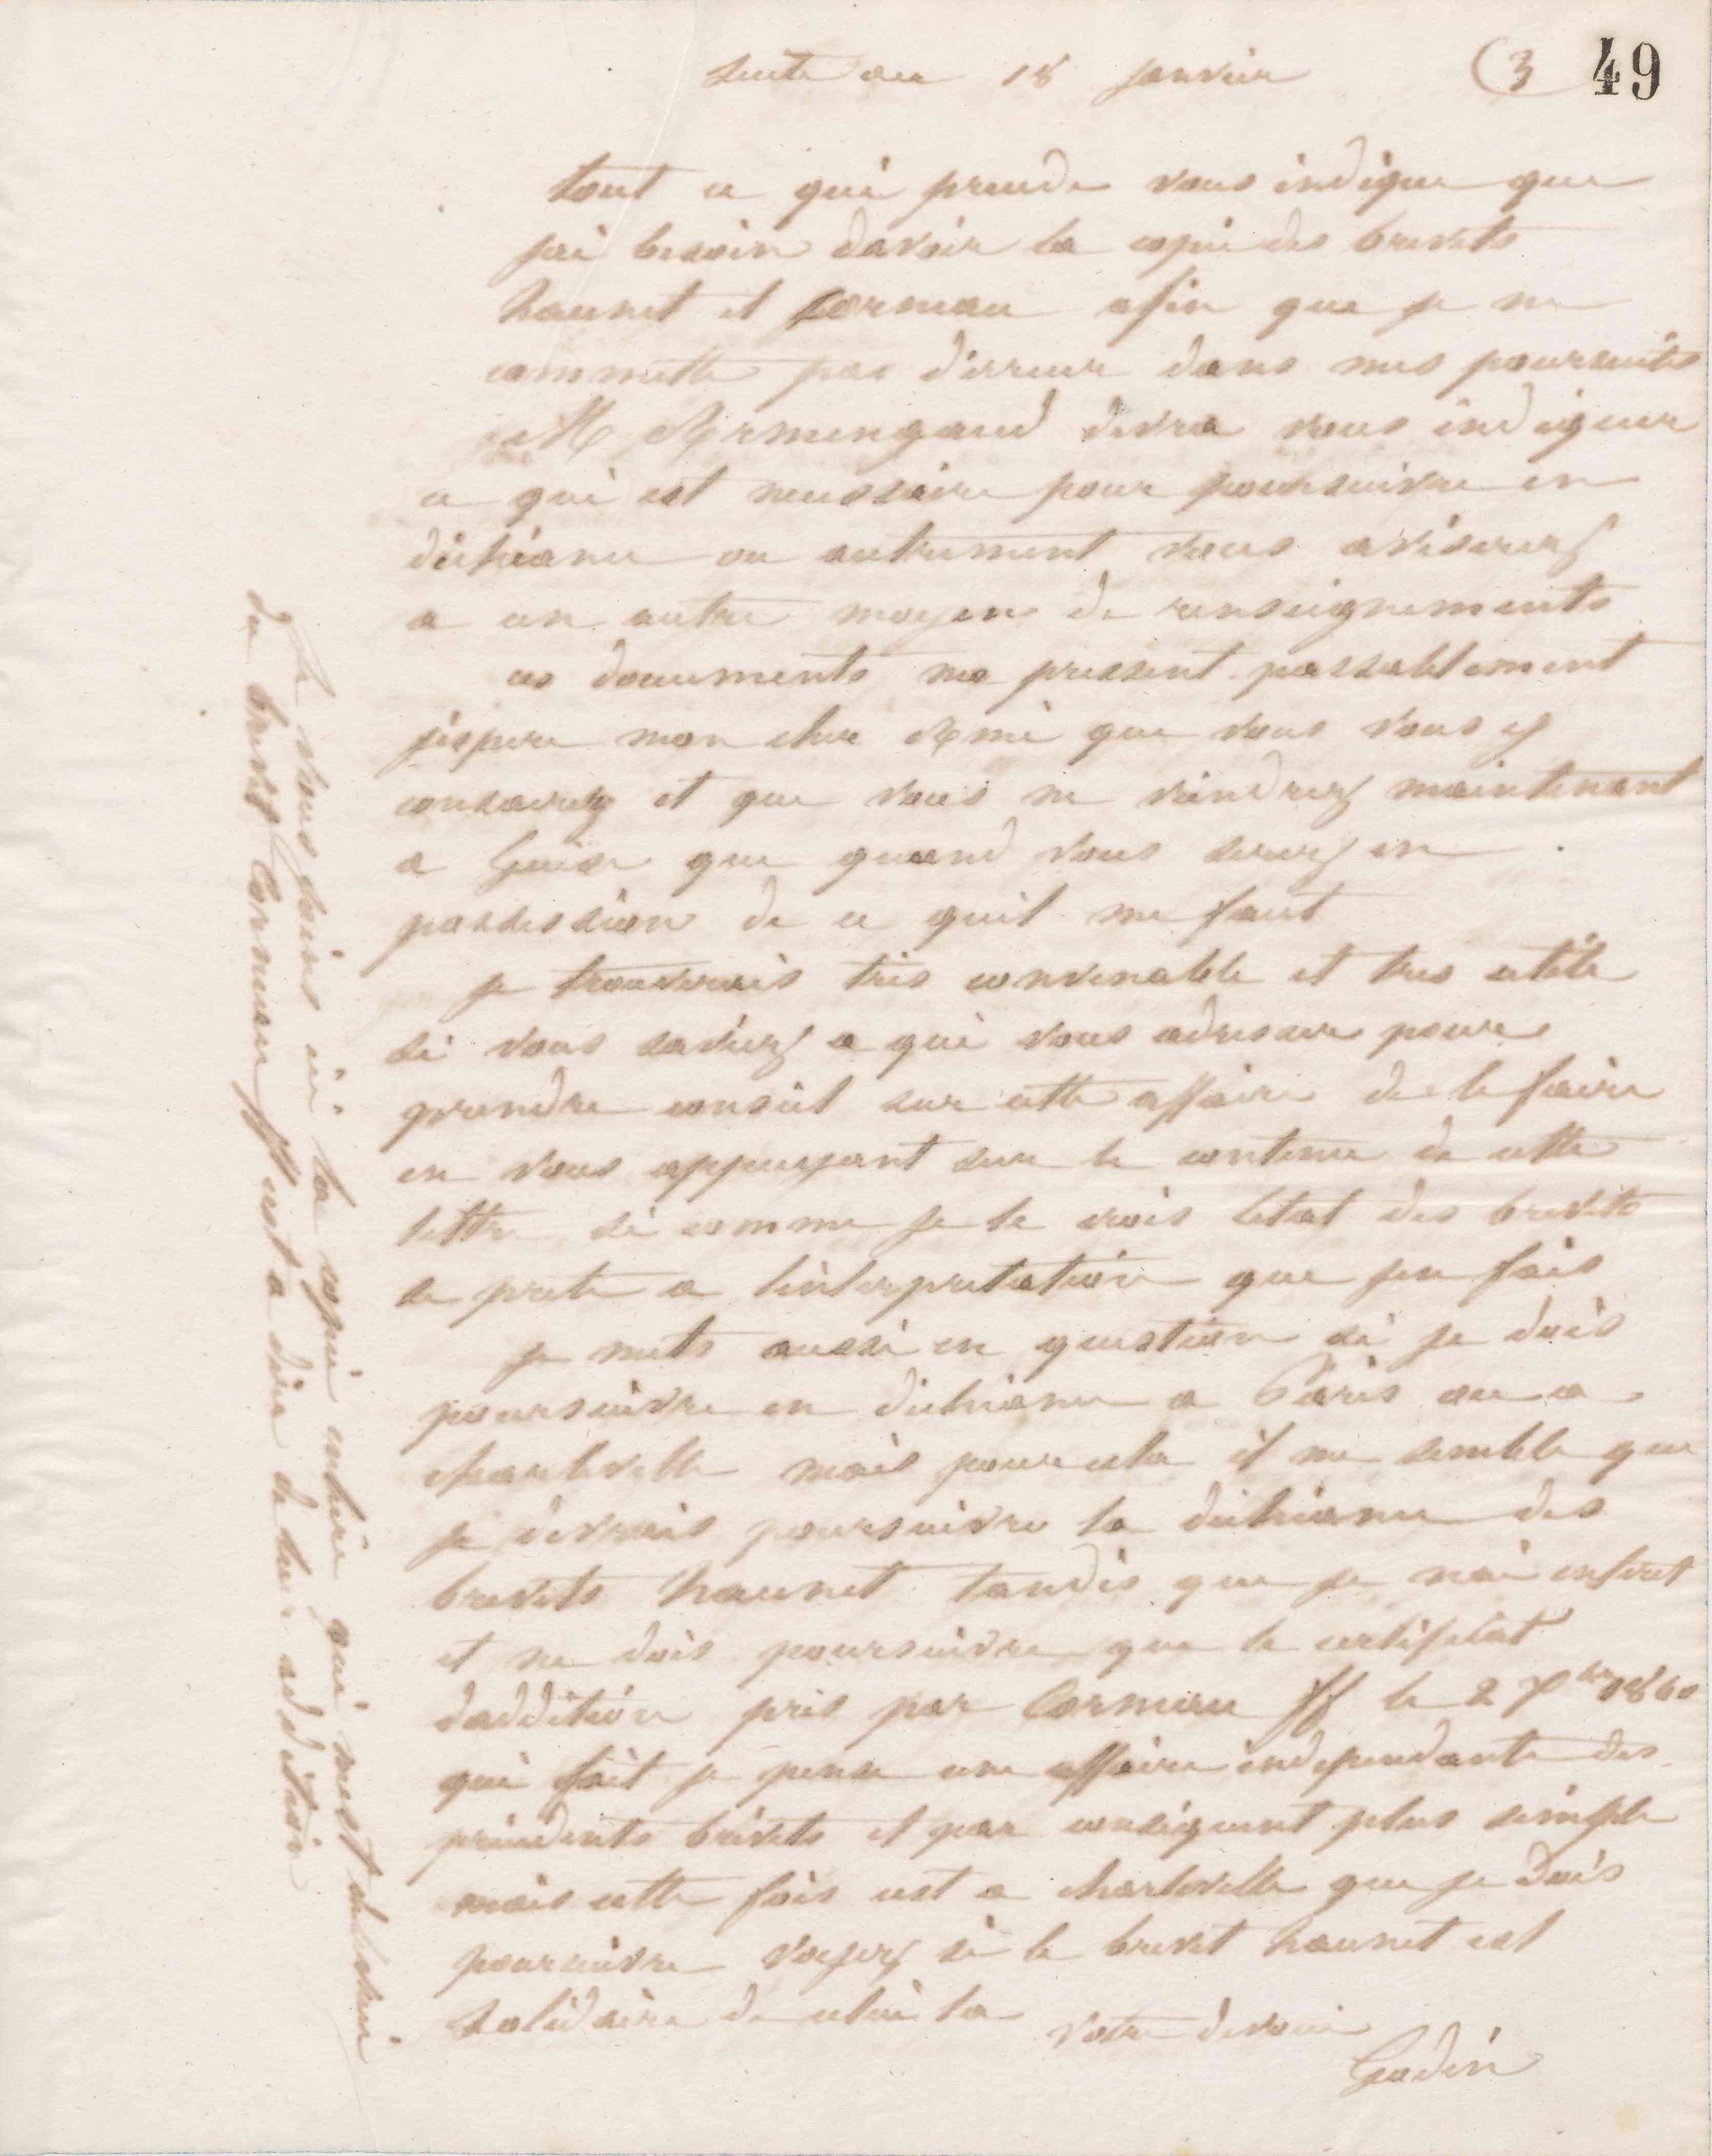 suite au 18 janvier (3 49
tout ce qui precede vous indique que
jai besoin davoir la copie des brevets
haunet et Corneau afin que je ne
commette pas derreur dans mes poursuites
M Armengaud devra vous indiquer
ce qui est necessaire pour poursuivre en
déchéance ou autrement vous aviserez
a un autre moyen de renseignements
ces documents me pressent passablement
jespere mon cher Ami que vous vous y
consacrez et que vous ne viendrez maintenant
a Guise que quand vous serez en
possession de ce quil me faut
je trouverais très convenable et tres utile
si vous saviez a qui vous adresser pour
prendre conseil sur cette affaire de le faire
en vous appuyant sur le contenu de cette
lettre si comme je le crois letat des brevets
se prete a linterpretation que jen fais
je mets aussi en question si je dois
poursuivre en déchéance a Paris ou a
charleville mais pour cela il me semble que
je devrais poursuivre la déchéance des
brevets haunet tandis que je nai interet
et ne dois poursuivre que le certificat
daddition pris par Corneau ff le 2 7bre 1860
qui fait je pense une affaire independante des
précédents brevets et par conséquent plus simple
mais cette fois cest a charleville que je dois
poursuivre voyez si le brevet haunet est
solidaire de celui la votre devoué
Godin
Je vous joins ici la copie entière qui mest
du brevet Corneau ff cest a dire de leur addition